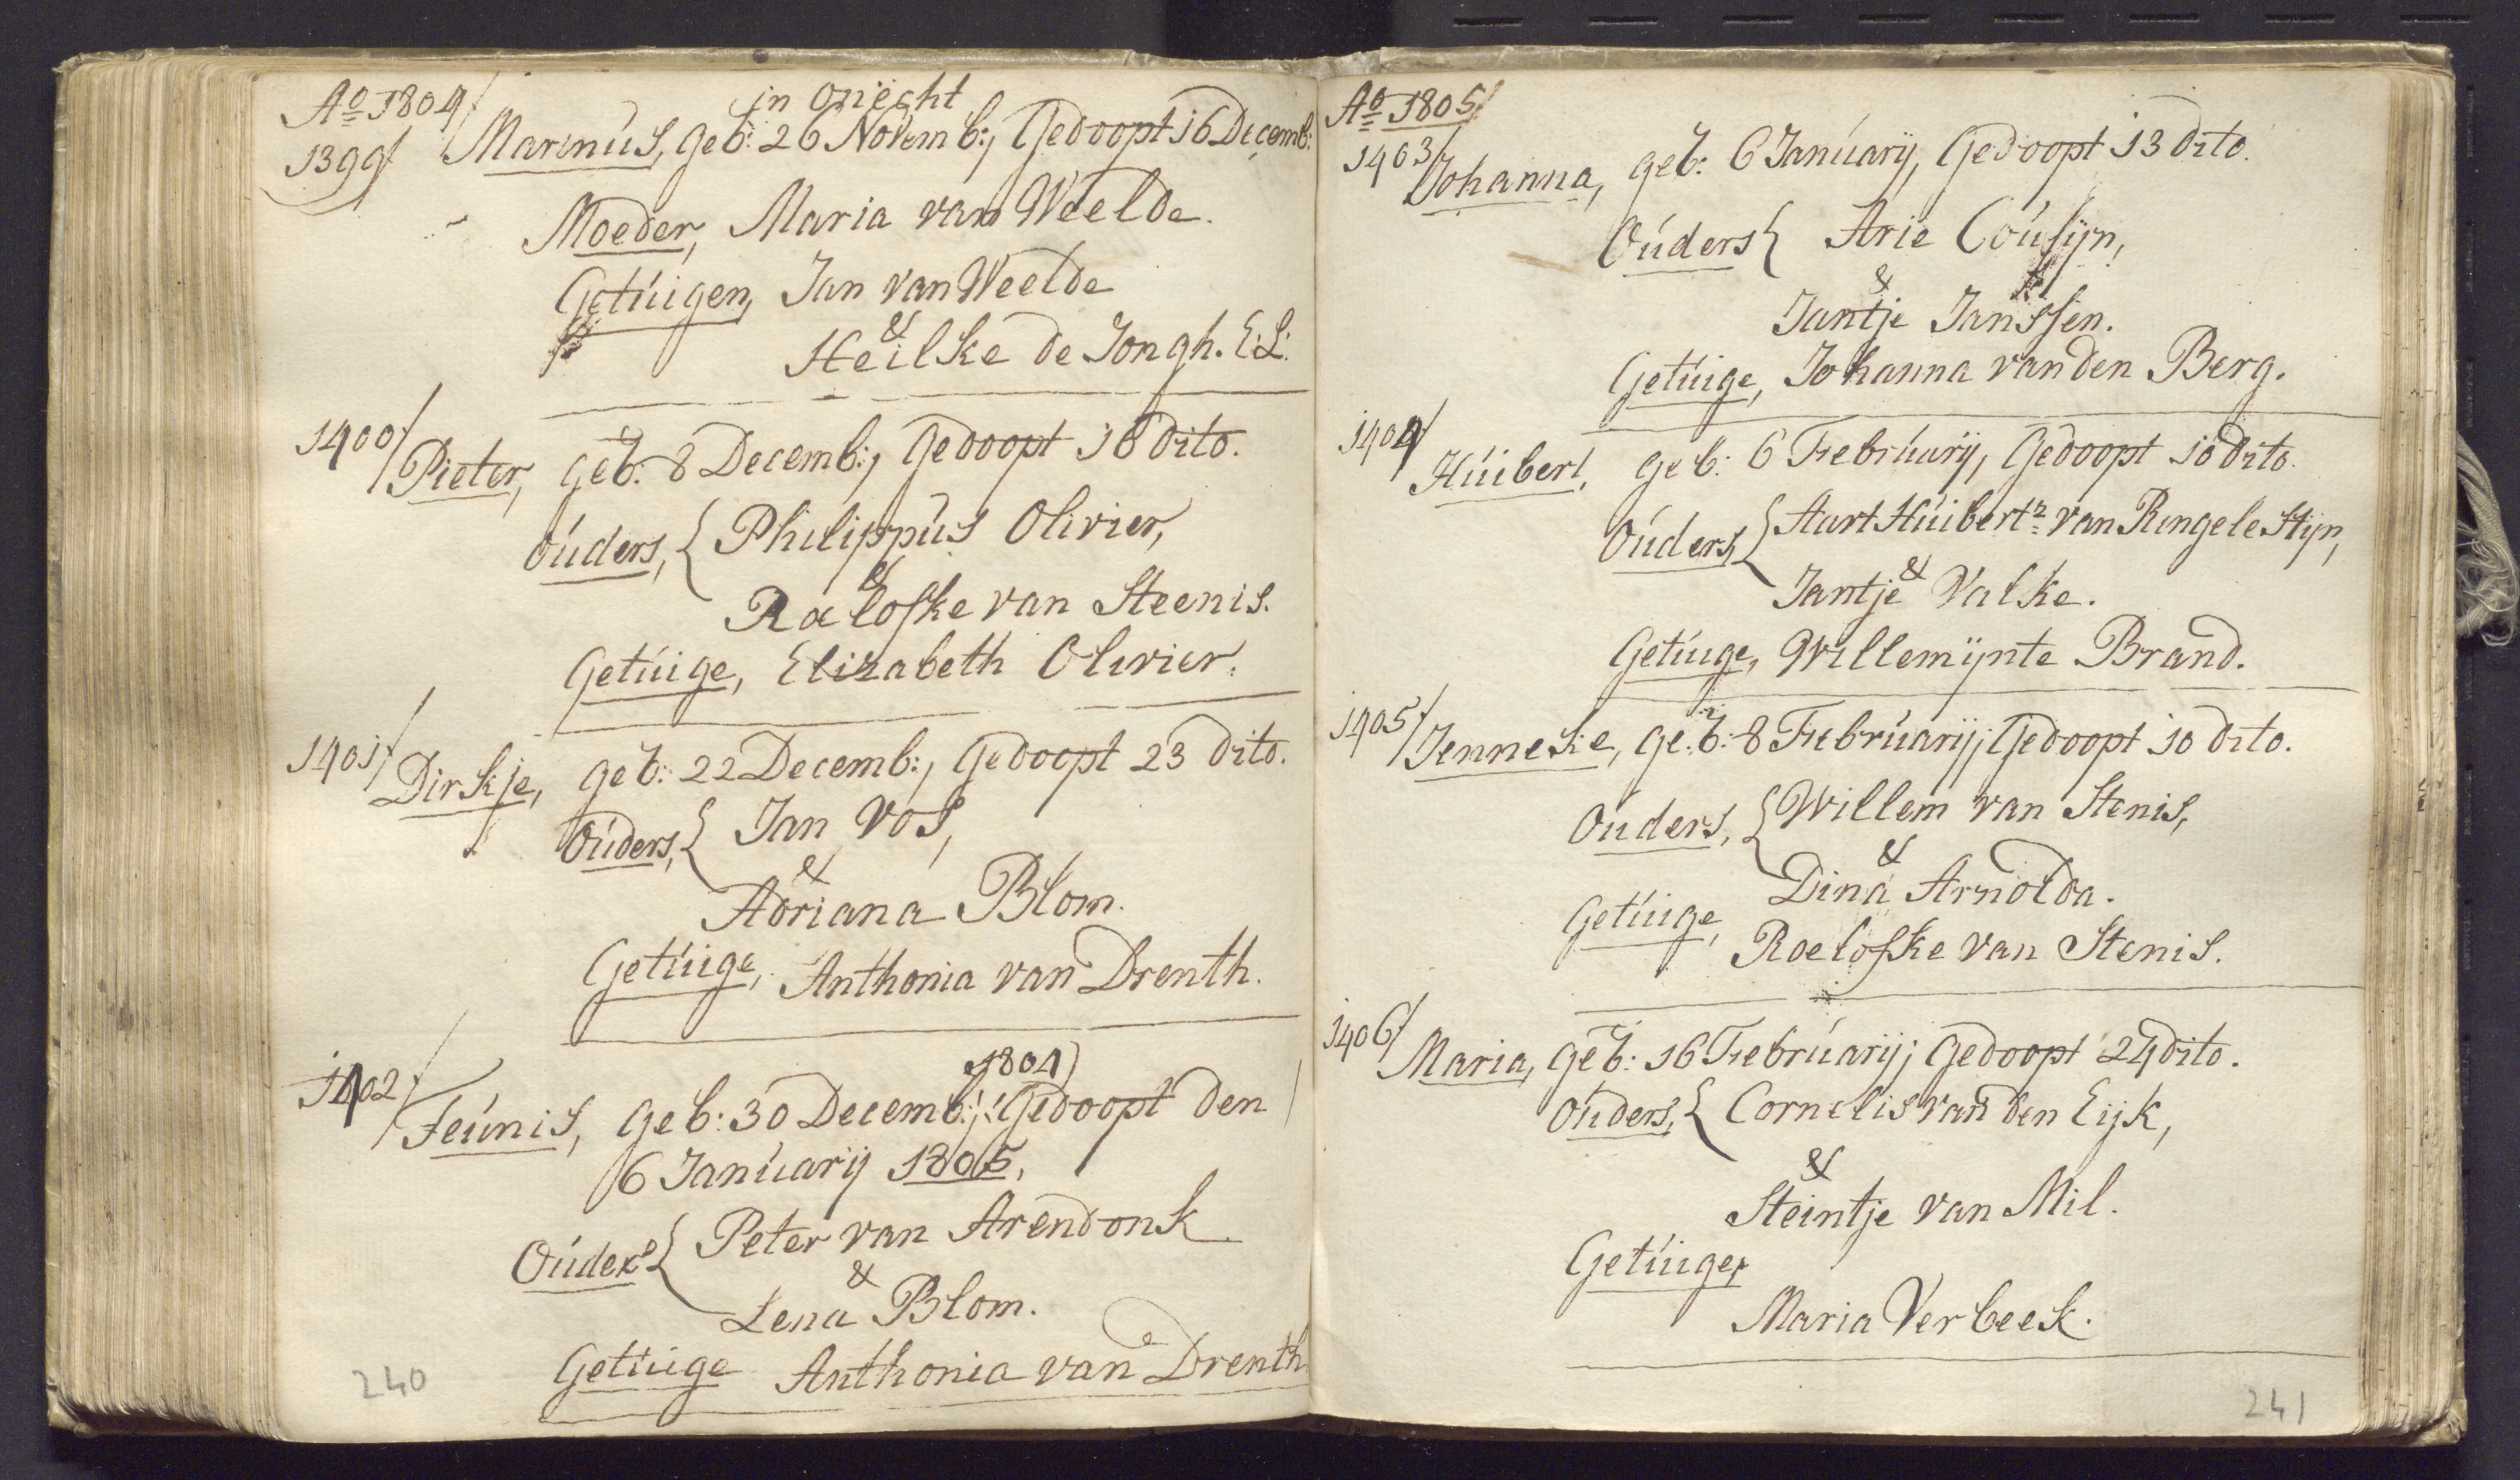 Ao 1804/
in oneght
1399/ Marinús, geb: 26 Novemb:, Gedoopt 16 Decemb:
Moeder, Maria van Weelde.
Getúigen, Jan van Weelde
&
Heilke de Jongh. E:L:
1400/ Pieter, geb: 8 Decemb:, Gedoopt 16 dito.
Oúders, { Philippús Olivier,
&
Roelofke van Steenis.
Getúige, Elizabeth Olivier.
1401/ Dirkje, geb: 22 Decemb:, Gedoopt 23 dito.
Oúders, { Jan Vos,
&
Adriana Blom.
Getúige, Anthonia van Drenth.
1804
1402/ Teúnis, geb: 30 Decemb:, Gedoopt den
6 Janúarij 1805,
Oúders { Peter van Arendonk
&
Lena Blom.
Getúige Anthonia van Drenth
240
Ao 1805/
1403/ Johanna, geb: 6 Janúarij, Gedoopt 13 dito.
Oúders { Arie Coúsijn,
&
Jantje Janssen.
Getúige, Johanna van den Berg.
1404/ Húibert, geb: 6 Febrúarij, Gedoopt 10 dito.
Oúders, { Aart Húibertz van Ringelestijn,
&
Jantje Valke.
Getúige, Willemijnte Brand.
1405/ Jenneke, geb: 8 Febrúarij, Gedoopt 10 dito.
Ouders, { Willem van Stenis,
&
Dina Arnolda.
Getúige, Roelofke van Stenis.
1406/ Maria, geb: 16 Febrúarij; Gedoopt 24 dito.
Oúders, { Cornelis van den Eijk,
&
Steintje van Mil.
Getúige,
Maria Verbeek.
241